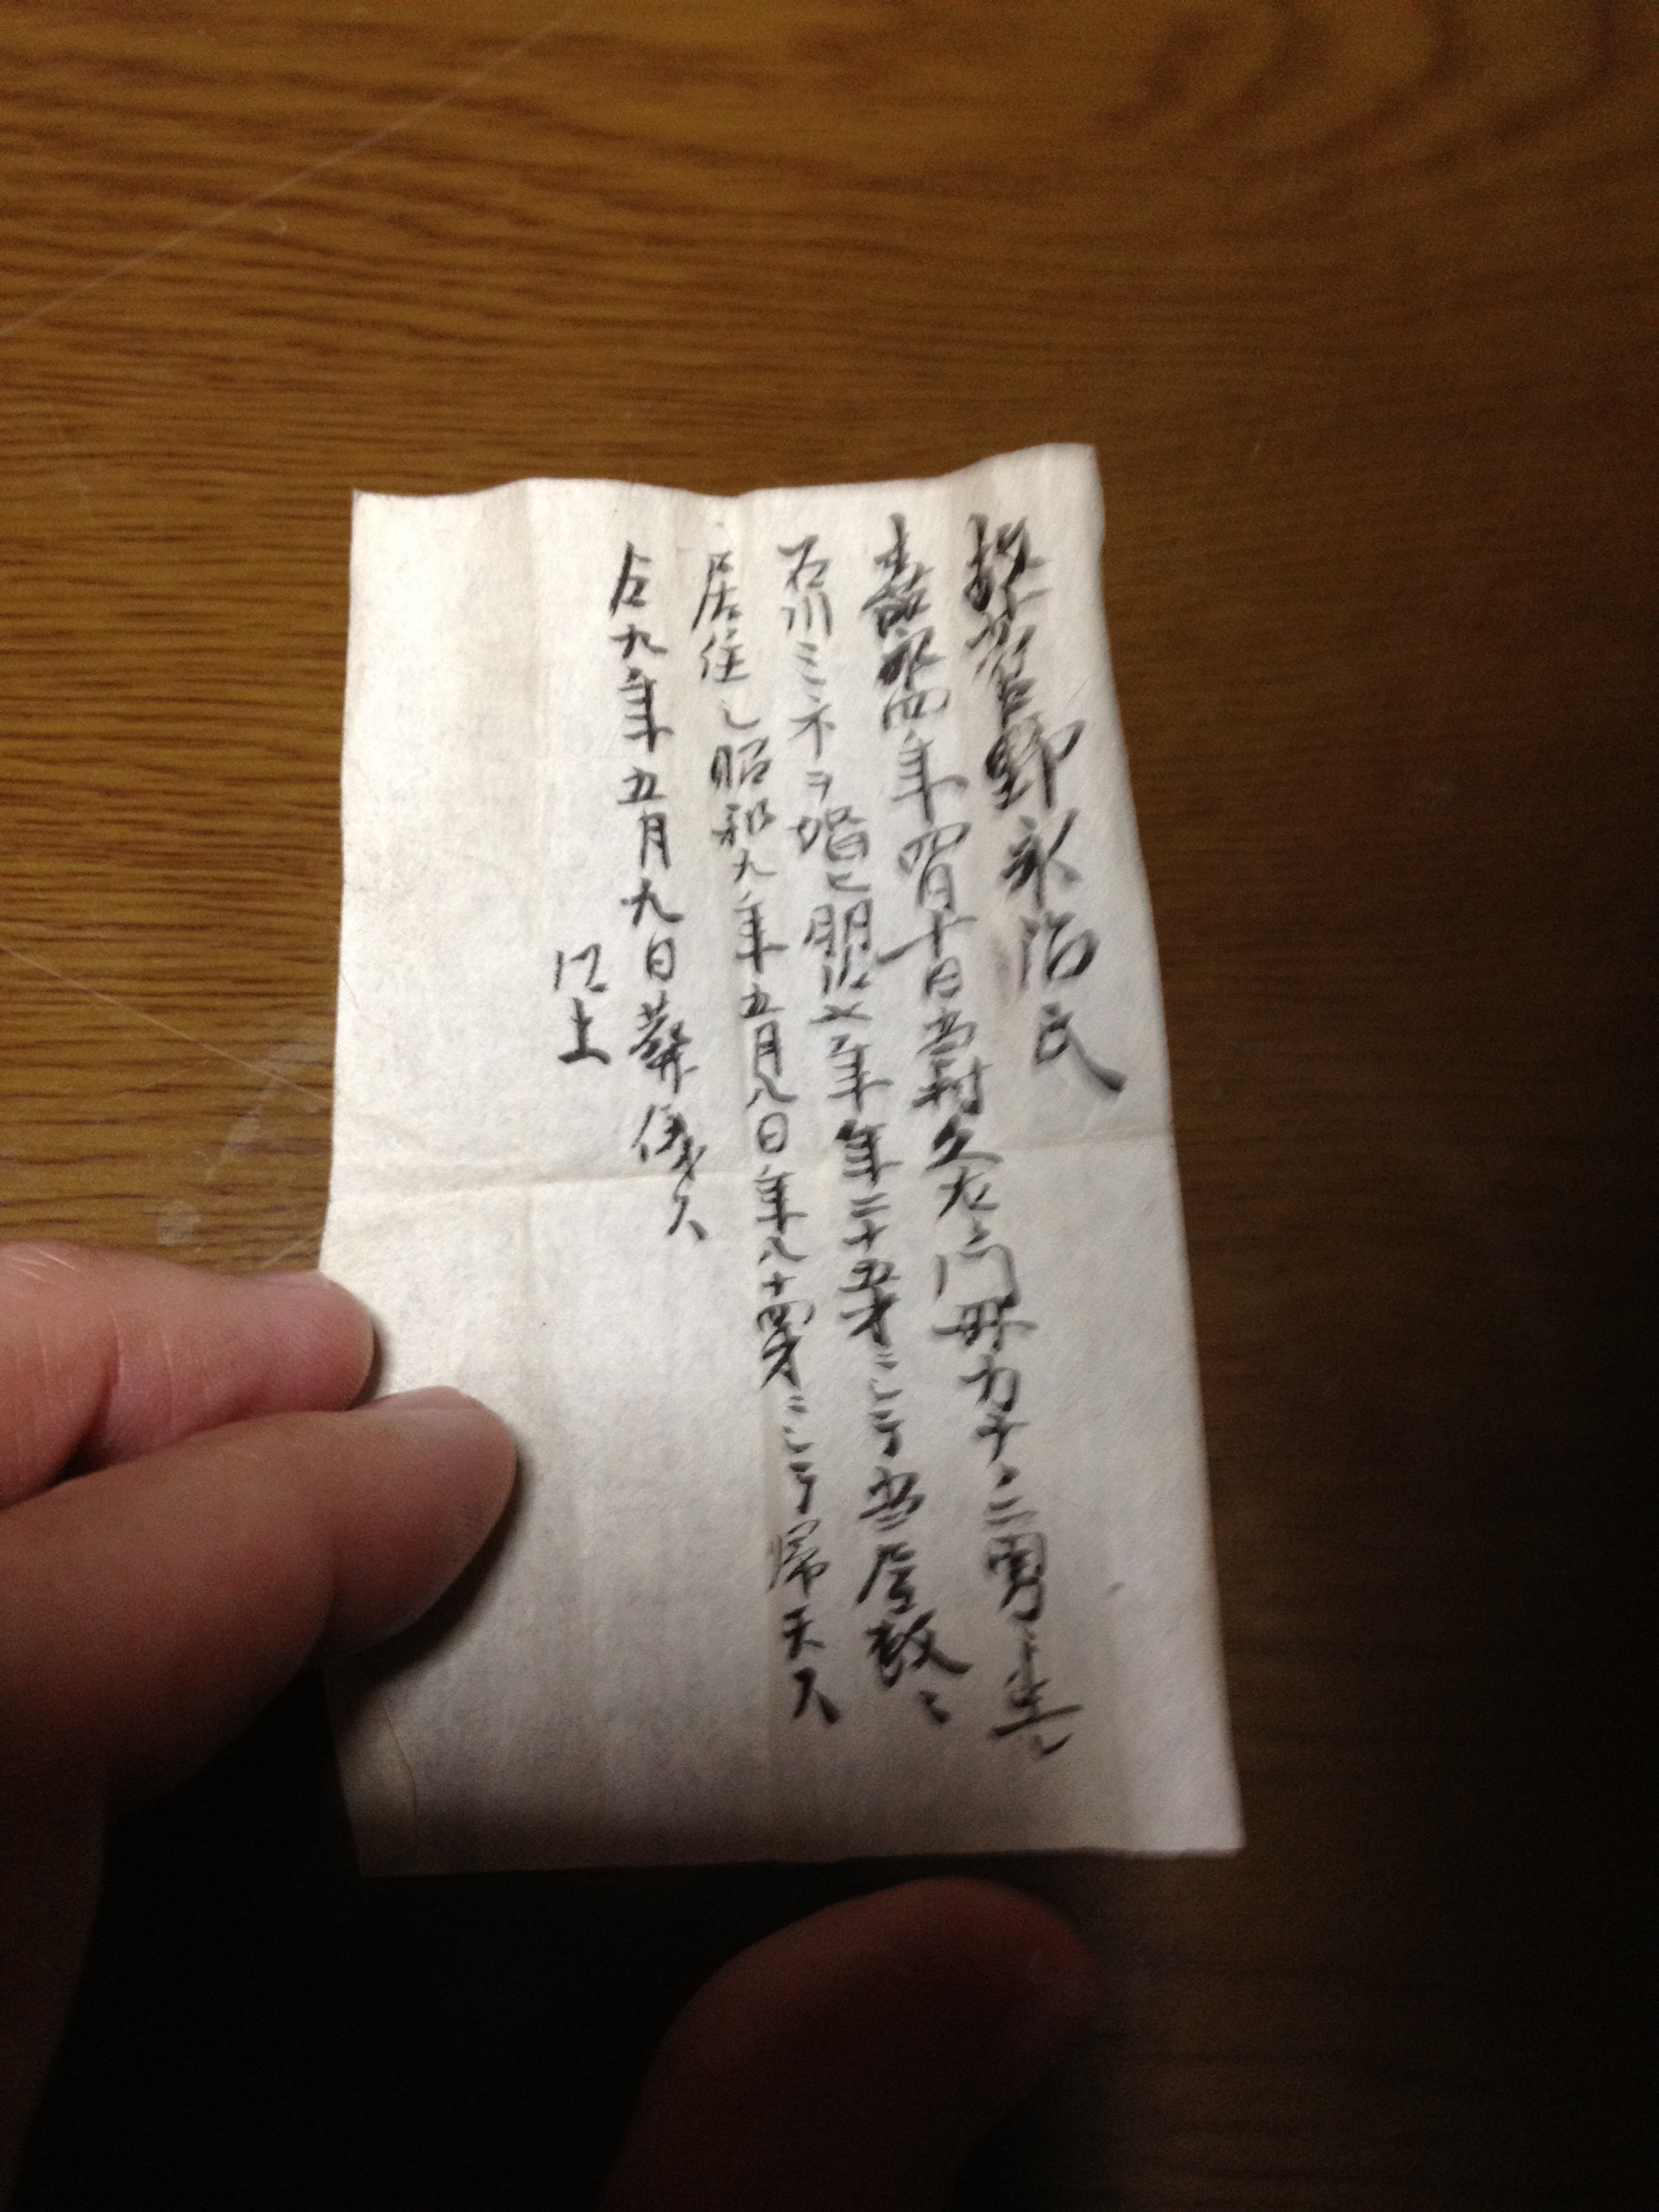 菅野永治氏
嘉永四年四月十日当村久右エ門母カナ二男ニ生レ
石川ミネヲ婚ヒ明治七年年二十五才ニシテ当屋敷ニ
居住シ昭和九年五月八日年八十四才ニシテ帰天ス
仝九年五月九日葬儀ス
以上